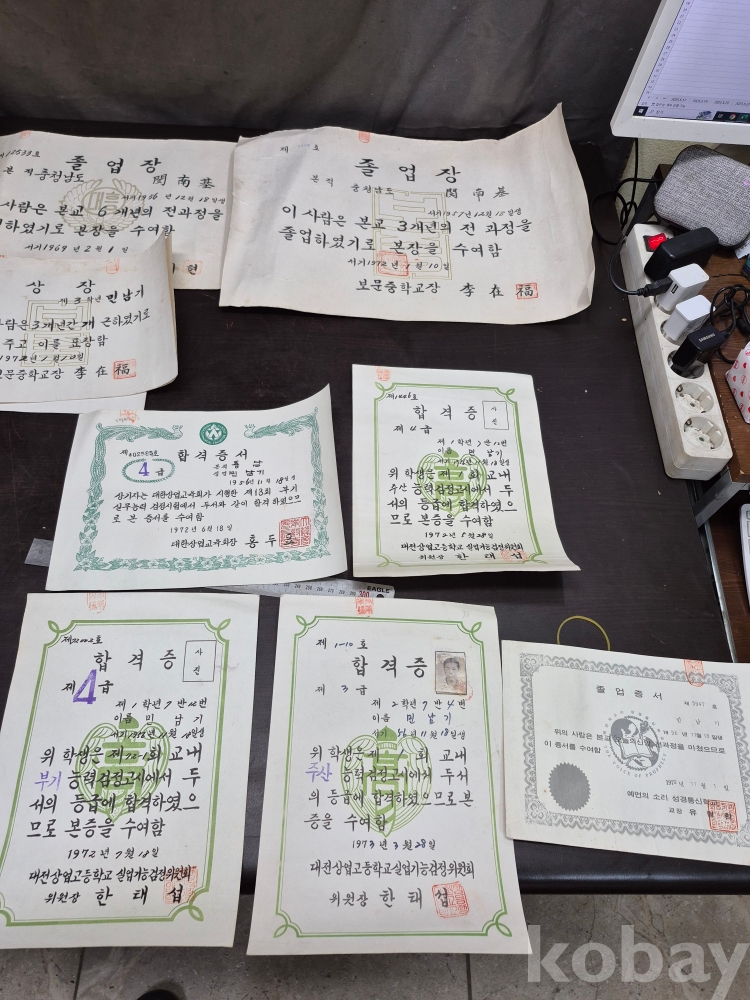 졸업장
본적 충청남도
閔南基
서기1956年12月18일생
사람은 본교 6개년의 전과정을
하였기로 본장을 수여함
서기1969年2月1日
졸업장
본적 충청남도
閔南基
서기1957年12月18일생
이 사람은 본교 3개년의 전과정을
졸업하였기로 본장을 수여함
서기1972年1月10日
보문중학교장 李在福
상장
제3학년 민남기
사람은 3개년간 개근하였기로
주고 이를 표창함
1972年1月10日
보문중학교장 李在福
합격증서
4급
민남기
1956年11月18일생
상기자는 대한상업교육회가 시행한 제13회 부기
실무능력 검정시험에서 두서와 같이 합격하였으
므로 본 증서를 수여함
1972年6月18日
대한상업교육회장 홍두표
합격증
사진
제4급
제1학년7반12번
이름 민남기
위 학생은 제1회 교내
주산능력검정고시에서 두
서의 등급에 합격하였으
므로 본증을 수여함
1972年5月28日
대전상업고등학교 실업기능검정위원회
위원장 한태섭
EAGLE
합격증
사진
제4급
제1학년7반12번
이름 민남기
위 학생은 제72-1회 교내
부기능력검정고시에서 두
서의 등급에 합격하였으
므로 본증을 수여함
1972年7月18日
대전상업고등학교 실업기능검정위원회
위원장 한태섭
제1-10호
합격증
제3급
제2학년7반4번
이름 민남기
서기56年11月18일생
위 학생은 제 회 교내
주산능력검정고시에서 두서
의 등급에 합격하였으므로 본
증을 수여함
1973年3月28日
대전상업고등학교 실업기능검정위원회
위원장 한태섭
졸업증서
민남기
위의 사람은 본교 과정을 마쳤으므로
이 증서를 수여함
VOICE OF PROPHECY
예언의 소리 성경통신학교
교장 유
SAMSUNG
kobay